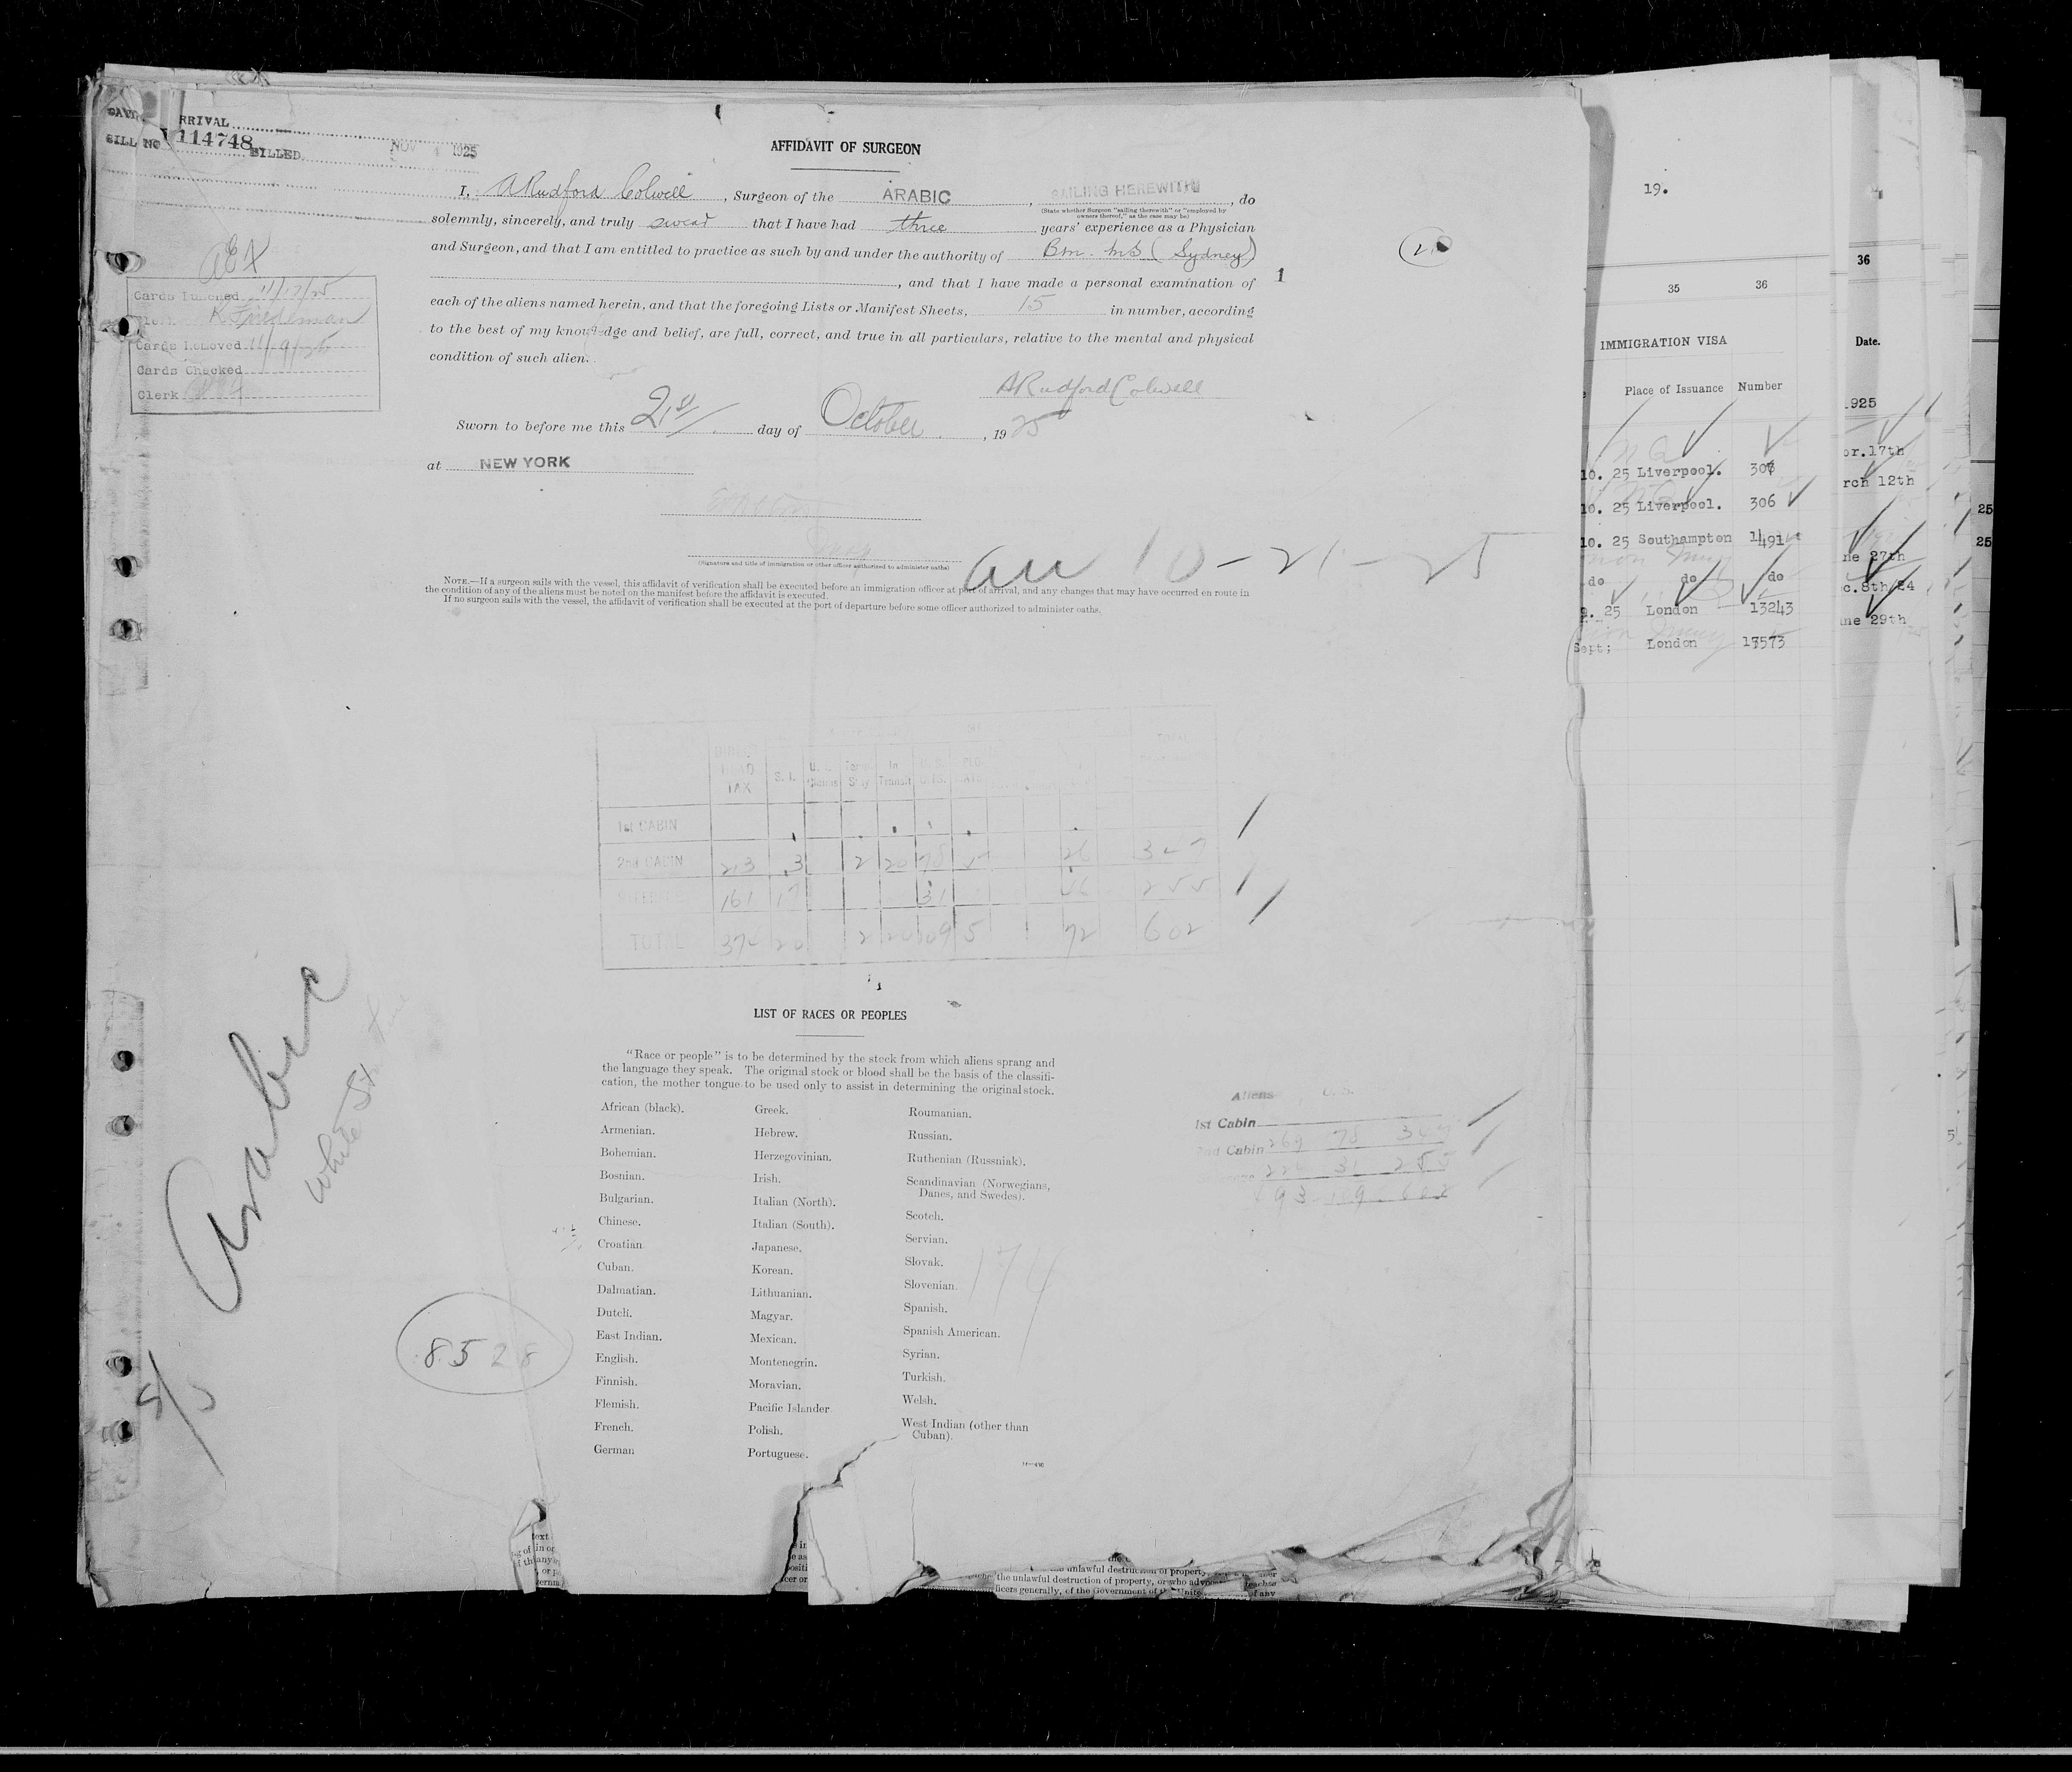 RRIVAL
BILL NO 114748 BILLED NOV 1925
AFFIDAVIT OF SURGEON
I, A Rudford Colwell, Surgeon of the ARABIC, SAILING HEREWITH, do
(State whether Surgeon "sailing therewith" or "employed by
owners thereof," as the case may be)
solemnly, sincerely, and truly swear that I have had three years' experience as a Physician
and Surgeon, and that I am entitled to practice as such by and under the authority of Bm. MS (Sydney)
, and that I have made a personal examination of 1
each of the aliens named herein, and that the foregoing Lists or Manifest Sheets, 15 in number, according
to the best of my knowledge and belief, are full, correct, and true in all particulars, relative to the mental and physical
condition of such alien.
A Rudford Colwell
Sworn to before me this 21st day of October, 1925
at NEW YORK
(Signature and title of immigration or other officer authorized to administer oaths)
arr 10-21-25
NOTE.—If a surgeon sails with the vessel, this affidavit of verification shall be executed before an immigration officer at port of arrival, and any changes that may have occurred en route in
the condition of any of the aliens must be noted on the manifest before the affidavit is executed.
If no surgeon sails with the vessel, the affidavit of verification shall be executed at the port of departure before some officer authorized to administer oaths.
Cards Punched 11/17/25
K Friedman
Cards Removed
Cards Checked
Clerk
DIRECT HEAD TAX S. I. In Transit TOTAL
1st CABIN
2nd CABIN 213 3 2 20 78 5 26 347
STEERAGE 161 17 31 46 255
TOTAL 374 20 2 20 109 5 72 602
LIST OF RACES OR PEOPLES
"Race or people" is to be determined by the stock from which aliens sprang and
the language they speak. The original stock or blood shall be the basis of the classifi-
cation, the mother tongue to be used only to assist in determining the original stock.
African (black).
Armenian.
Bohemian.
Bosnian.
Bulgarian.
Chinese.
Croatian
Cuban.
Dalmatian.
Dutch.
East Indian.
English.
Finnish.
Flemish.
French.
German
Greek.
Hebrew.
Herzegovinian.
Irish.
Italian (North).
Italian (South).
Japanese.
Korean.
Lithuanian.
Magyar.
Mexican.
Montenegrin.
Moravian.
Pacific Islander
Polish.
Portuguese.
Roumanian.
Russian.
Ruthenian (Russniak).
Scandinavian (Norwegians,
Danes, and Swedes).
Scotch.
Servian.
Slovak.
Slovenian.
Spanish.
Spanish American.
Syrian.
Turkish.
Welsh.
West Indian (other than
Cuban).
174
Aliens U. S.
1st Cabin
2nd Cabin 269 78 347
224 31 255
493 109 602
Arabic
White St
8528
19.
35 36
IMMIGRATION VISA
Place of Issuance Number
10. 25 Liverpool.
10. 25 Liverpool. 306
10. 25 Southampton 1491
do do do
25 London 13243
Sept; London 17573
36
Date.
1925
or.17th
rch 12th
ne 27th
c.8th/24
ne 29th
25
25
the unlawful destruction of property
the unlawful destruction of property, or who
ficers generally, of the Government of